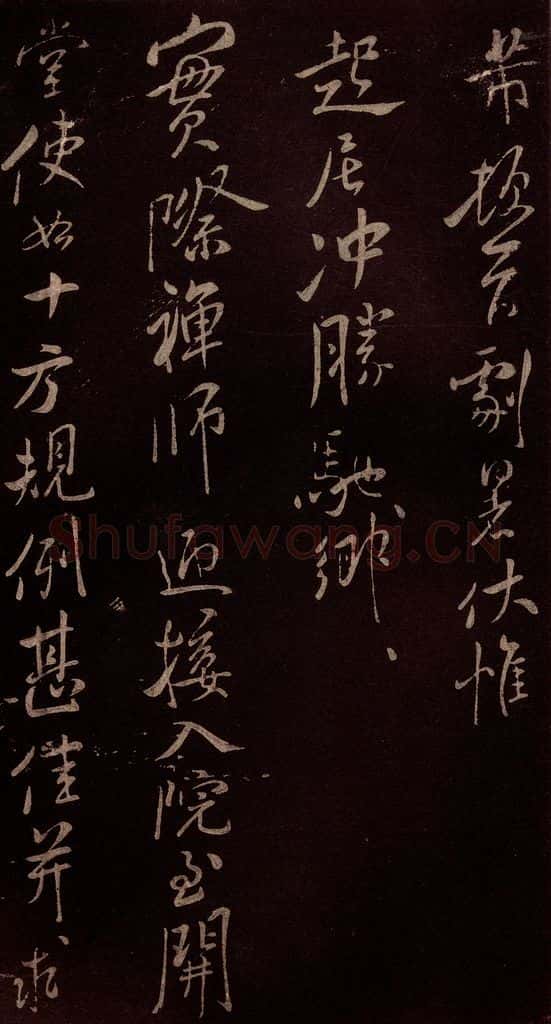 芾頓首劇暑伏惟
起居冲勝馳鄉、
實際禪師迎接入院至開
堂使如十方規例甚佳并、求
Shufawang.CN